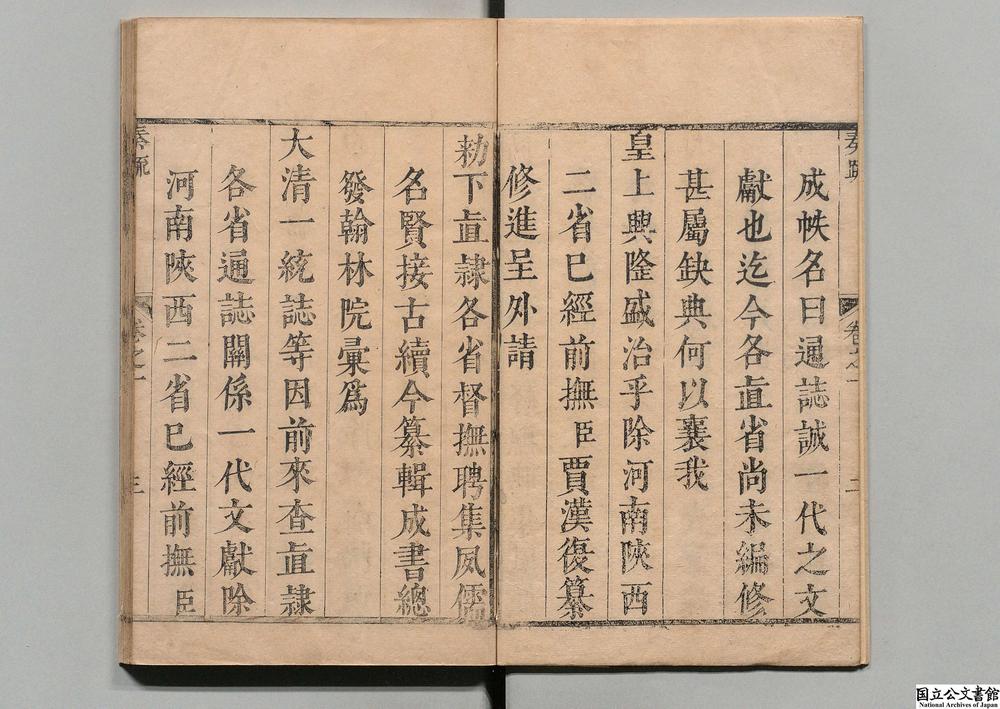 奏疏
卷之一
二
成帙名曰通誌誠一代之文
獻也迄今各直省尚未編修
甚屬缺典何以襄我
皇上興隆盛治乎除河南陝西
二省已經前撫臣賈漢復纂
修進呈外請
勑下直隸各省督撫聘集夙儒
名賢接古續今纂輯成書總
發翰林院彙爲
大清一統誌等因前來查直隸
各省通誌關係一代文獻除
河南陝西二省已經前撫臣
奏疏
卷之一
三
国立公文書館
National Archives of Japan